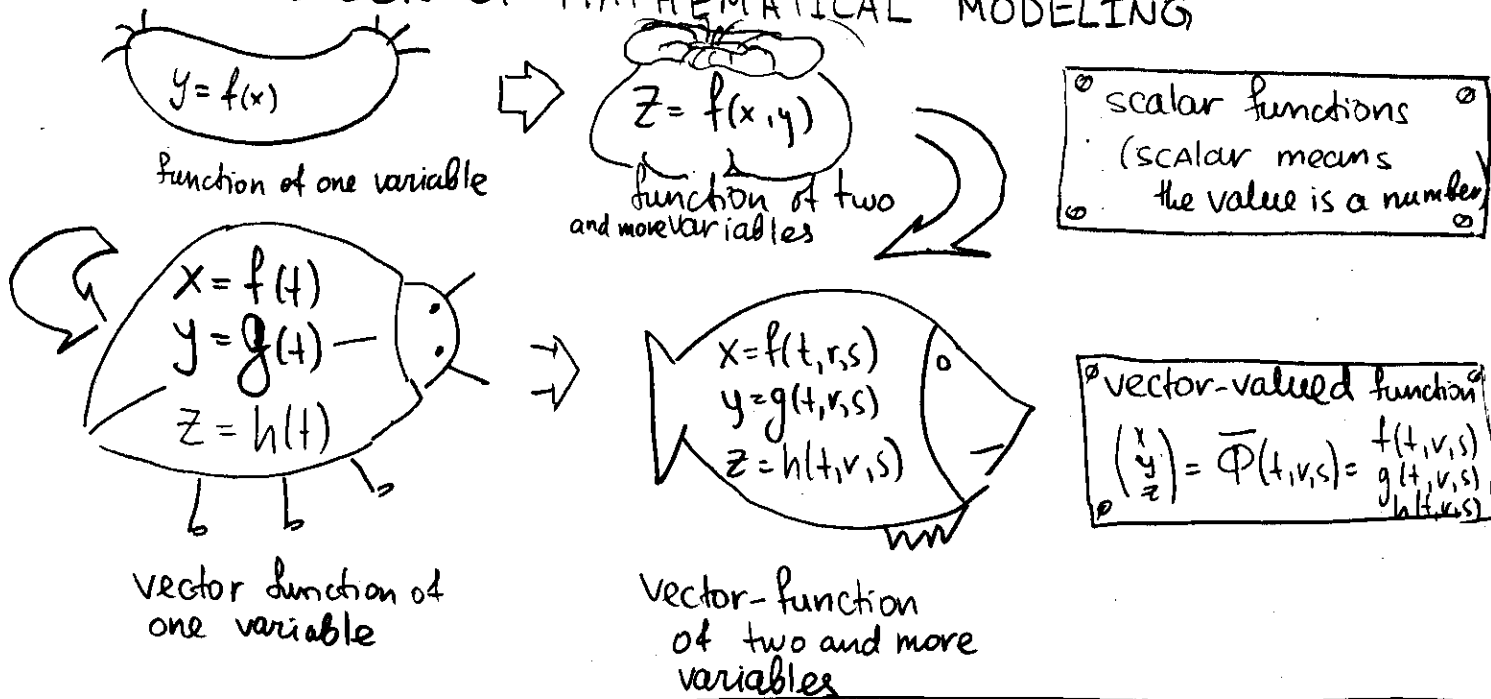 OF MATHEMATICAL MODELING
y = f(x)
function of one variable
z = f(x,y)
function of two
and more variables
scalar functions
(scalar means
the value is a number)
x = f(t)
y = g(t)
z = h(t)
vector function of
one variable
x = f(t,r,s)
y = g(t,r,s)
z = h(t,r,s)
vector-function
of two and more
variables
vector-valued function
(x y z) = Φ(t,r,s) = f(t,r,s)
g(t,r,s)
h(t,r,s)